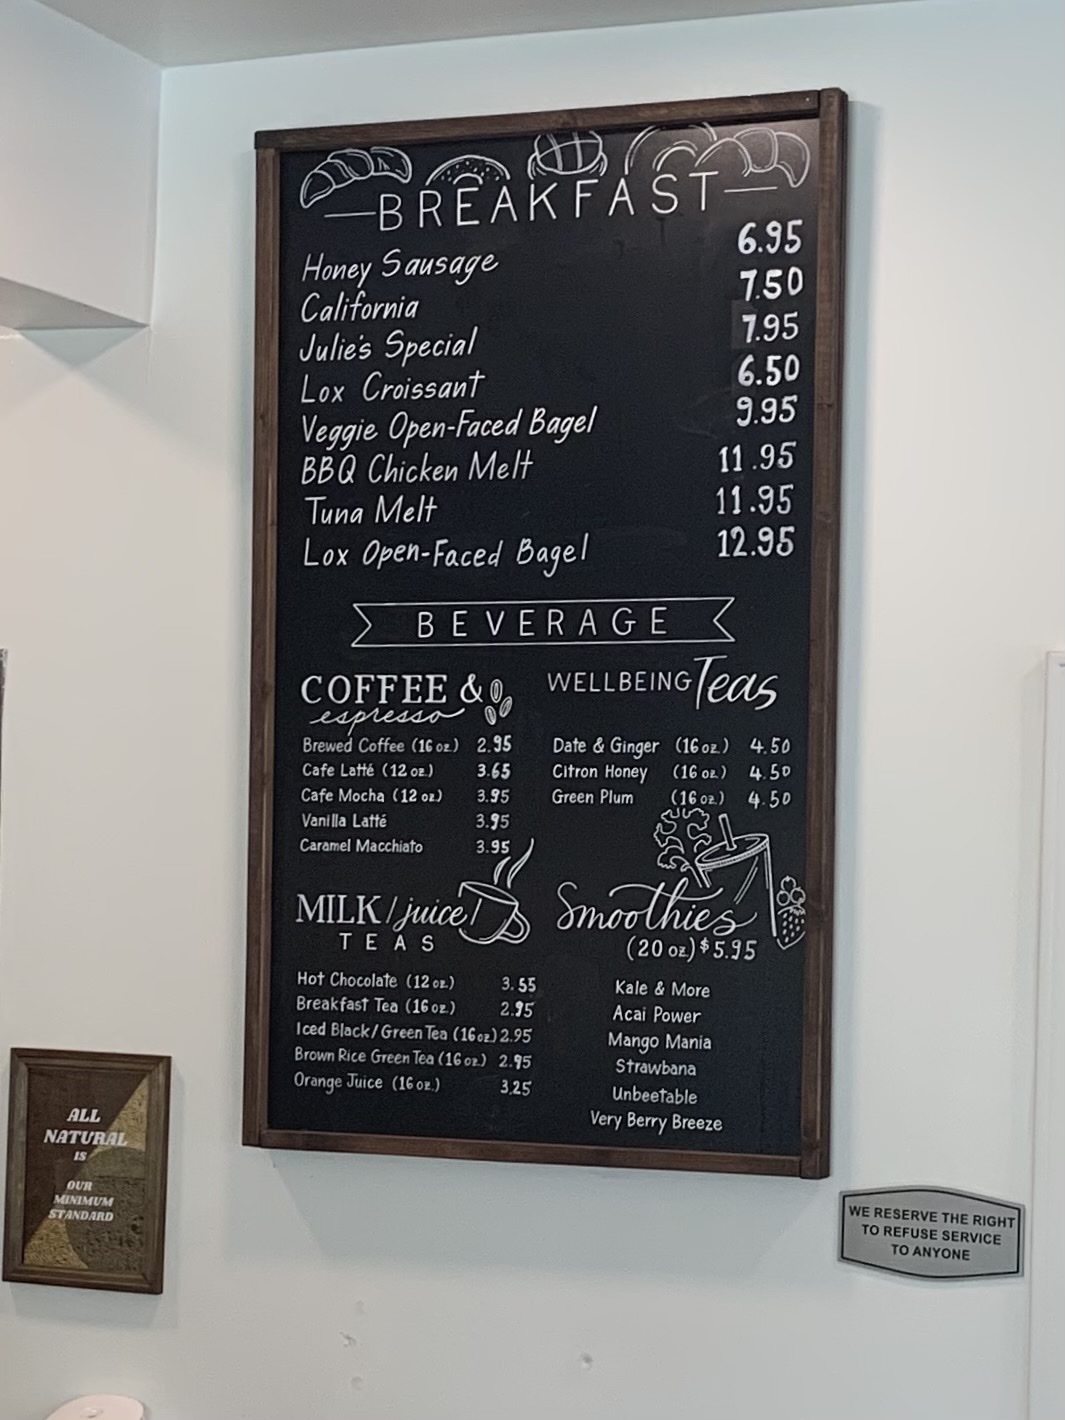 BREAKFAST
Honey Sausage 6.95
California 7.50
Julie's Special 7.95
Lox Croissant 6.50
Veggie Open-Faced Bagel 9.95
BBQ Chicken Melt 11.95
Tuna Melt 11.95
Lox Open-Faced Bagel 12.95
BEVERAGE
COFFEE &
espresso
Brewed Coffee (16 oz.) 2.95
Cafe Latté (12 oz.) 3.65
Cafe Mocha (12 oz.) 3.95
Vanilla Latté 3.95
Caramel Macchiato 3.95
WELLBEING Teas
Date & Ginger (16 oz.) 4.50
Citron Honey (16 oz.) 4.50
Green Plum (16 oz.) 4.50
MILK/juice/
TEAS
Hot Chocolate (12 oz.) 3.55
Breakfast Tea (16 oz.) 2.95
Iced Black/Green Tea (16 oz) 2.95
Brown Rice Green Tea (16 oz.) 2.95
Orange Juice (16 oz.) 3.25
Smoothies
(20 oz.) $5.95
Kale & More
Acai Power
Mango Mania
Strawbana
Unbeetable
Very Berry Breeze
ALL
NATURAL
IS
OUR
MINIMUM
STANDARD
WE RESERVE THE RIGHT
TO REFUSE SERVICE
TO ANYONE